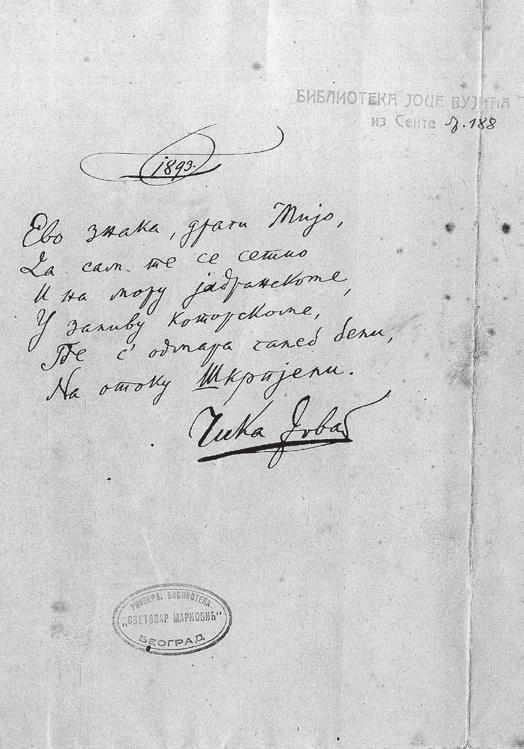 БИБЛИОТЕКА ЈОЦЕ ВУЈИЋА
из Сенте 188
1893.
Ево знака, драги Мијо,
Да сам те се сетио
И на мору јадранскоме,
У заливу которскоме,
Ђе с' одмара галеб бели,
На отоку Шкрпјели.
Чика Јова
УНИВЕРЗ. БИБЛИОТЕКА
„СВЕТОЗАР МАРКОВИЋ"
БЕОГРАД